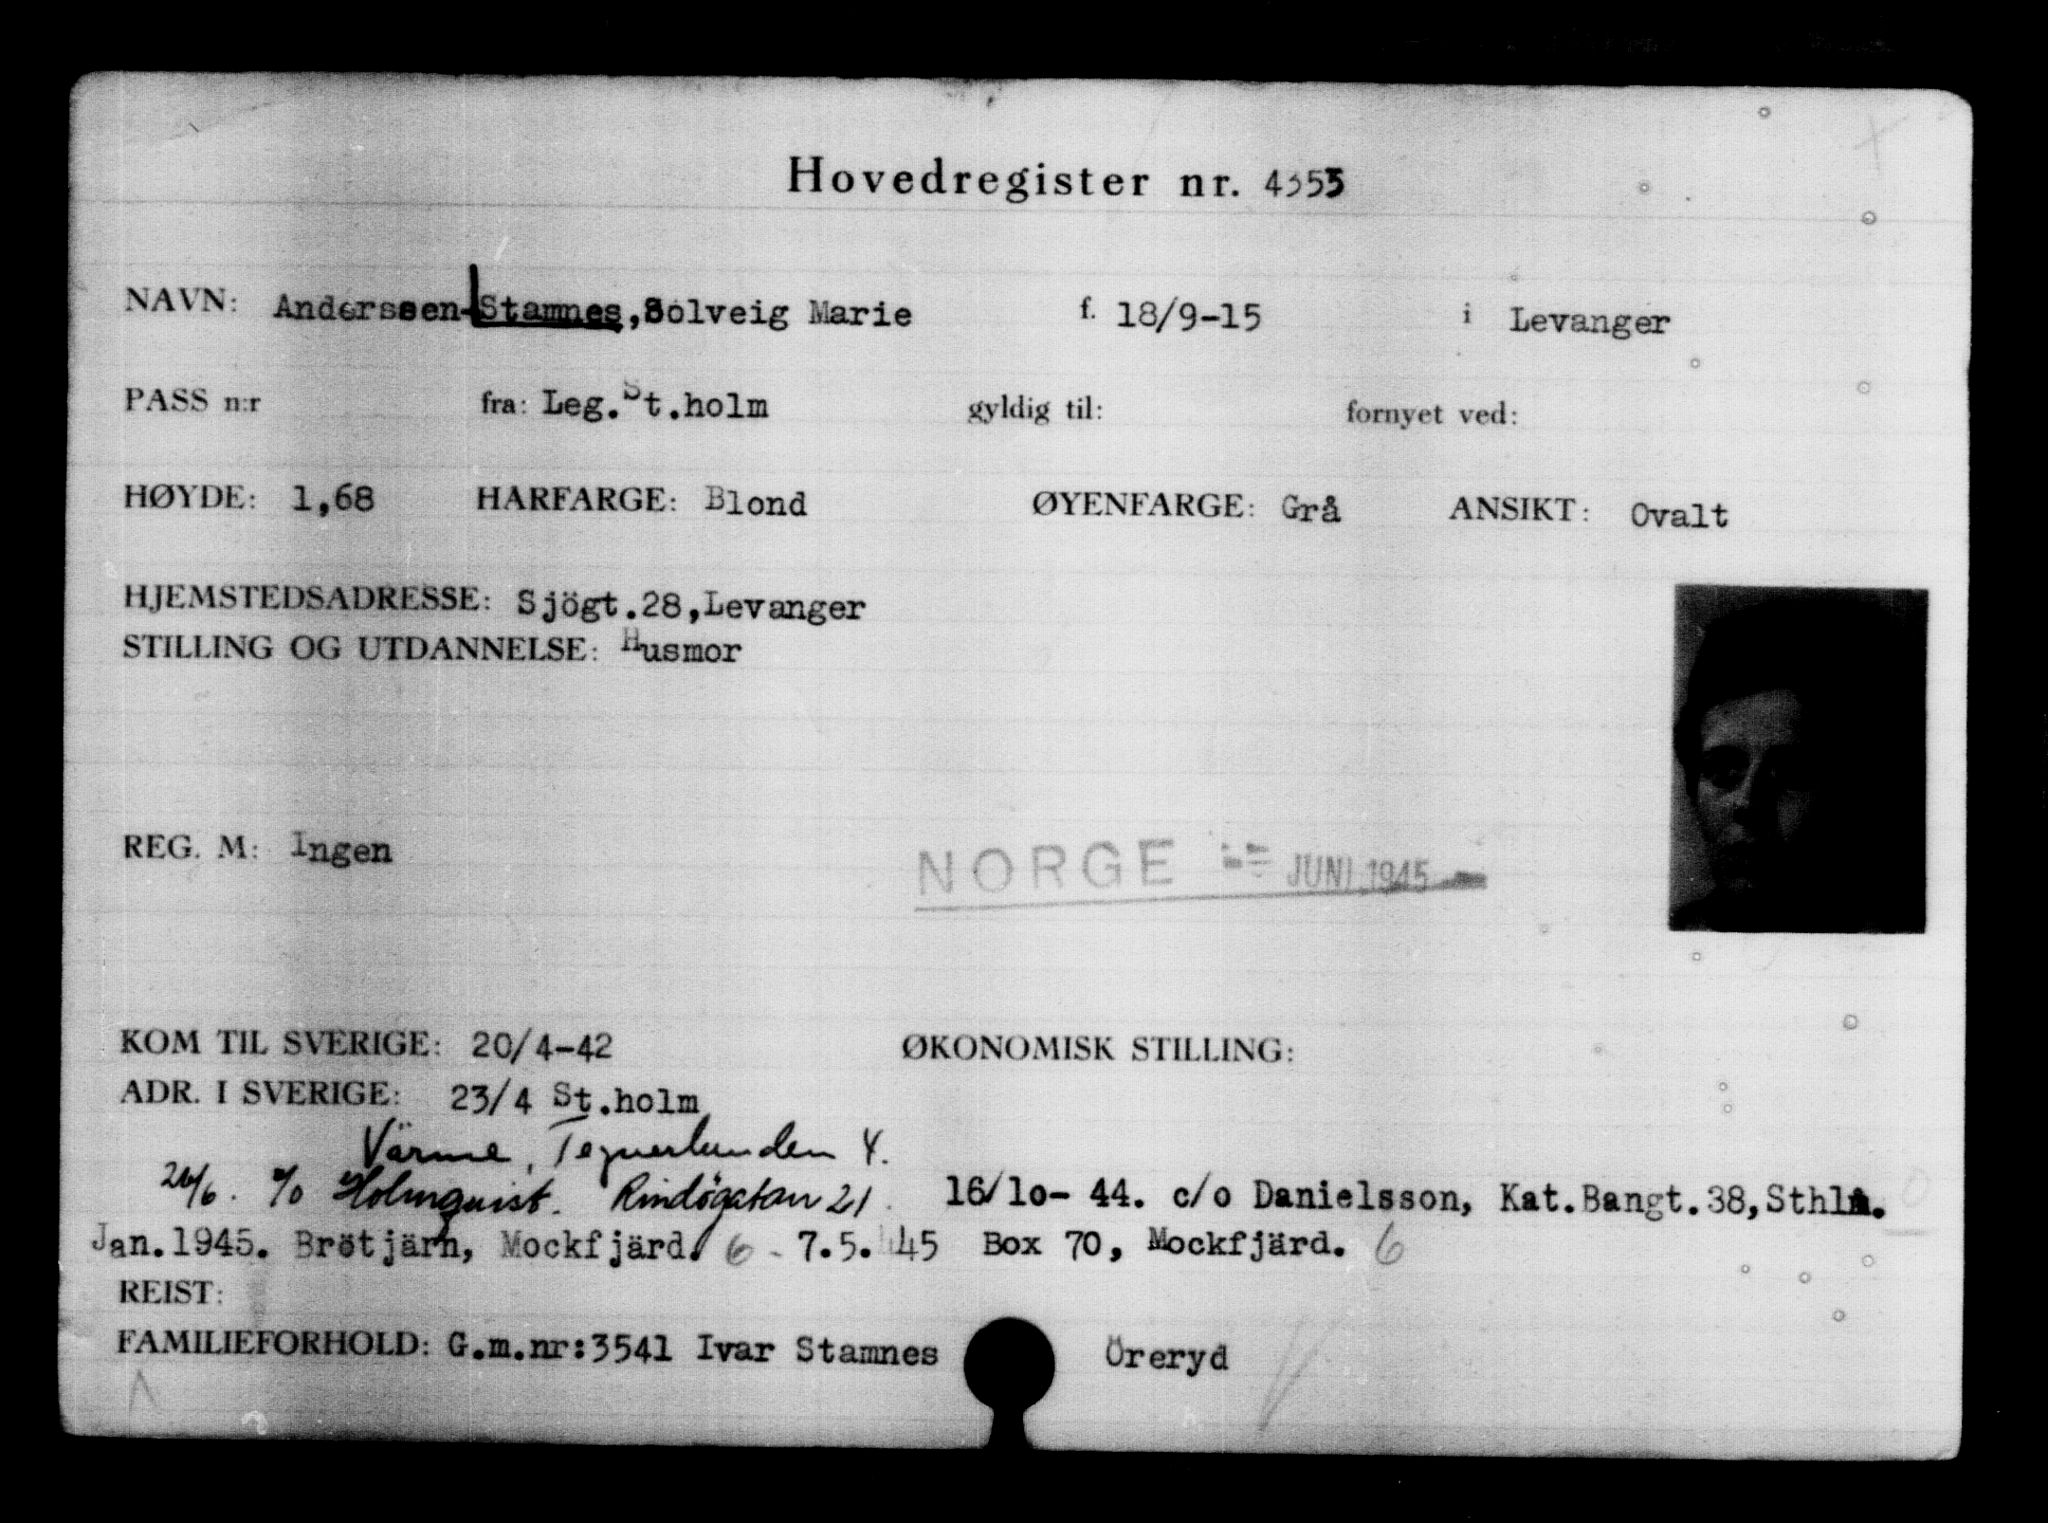 Hovedregister nr. 4353
NAVN: Anderssen-Stamnes, Solveig Marie f. 18/9-15 i Levanger
PASS n:r fra: Leg. St.holm gyldig til: fornyet ved:
HØYDE: 1,68 HARFARGE: Blond ØYENFARGE: Grå ANSIKT: Ovalt
HJEMSTEDSADRESSE: Sjögt.28, Levanger
STILLING OG UTDANNELSE: Husmor
REG. M: Ingen
NORGE JUNI 1945
KOM TIL SVERIGE: 20/4-42 ØKONOMISK STILLING:
ADR. I SVERIGE: 23/4 St.holm
Värme, Tegnerlunden 4.
26/6. c/o Holmquist. Rindögatan 21. 16/10- 44. c/o Danielsson, Kat.Bangt.38, Sthlm.
Jan.1945. Brötjärn, Mockfjärd. 6 - 7.5.45 Box 70, Mockfjärd. 6
REIST:
FAMILIEFORHOLD: G.m.nr:3541 Ivar Stamnes Öreryd